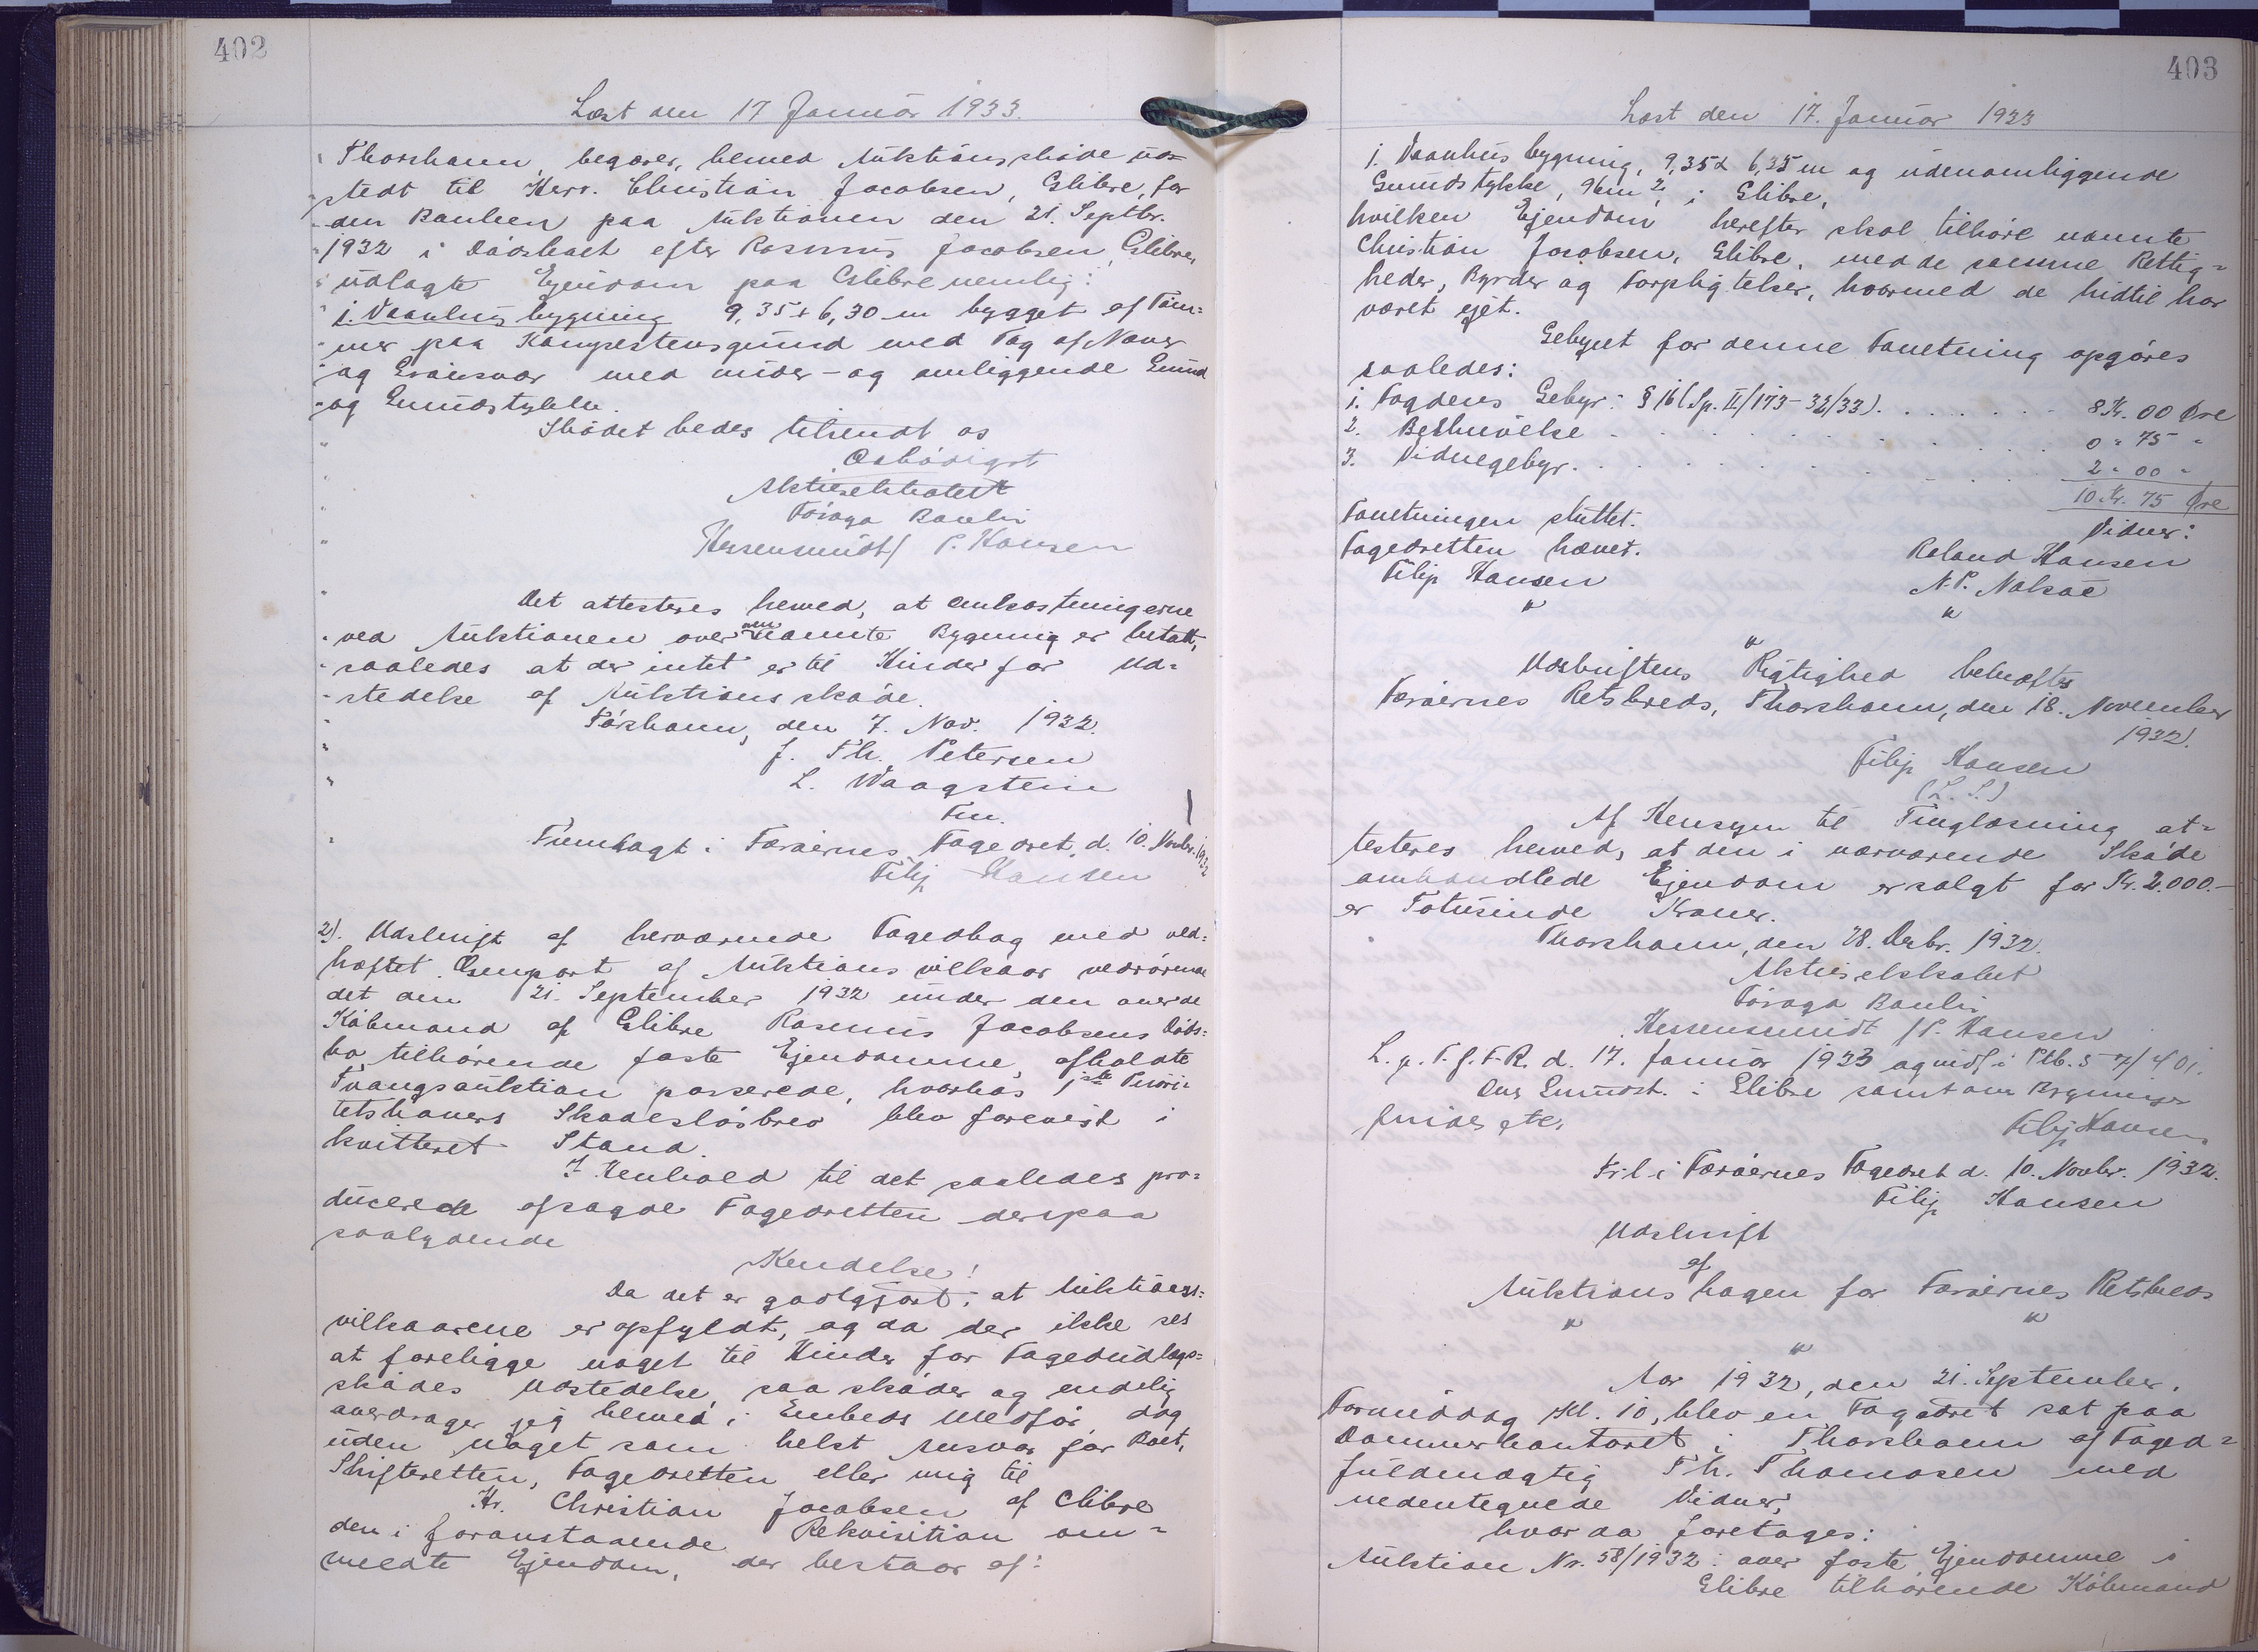 402
Læst den 17 Januar 1933.
" Thorshavn, begærer, hermed Auktionsskøde ud=
" stedt til Herr. Christian Jacobsen, Glibre, for
" den Banken paa Auktionen den 21. Septbr.
" 1932 i Dødsboet efter Rasmus Jacobsen, Glibre,
" udlagte Ejendom paa Glibre nemlig:
" 1. Vaanhus bygning 9,35 x 6,30 m bygget af Tøm=
" mer paa Kampestensgrund med Tag af Næver
" og Grønsvær med under- og omliggende Grund
" og Grundstykke.
" Skødet bedes tilsendt os
Ærbødigst
" Aktieselskabet
" Føroya Banki
" Hessensmidt / P. Hansen
" Det attesteres herved, at Omkostningerne
" ved Auktionen over oven nævnte Bygning er betalt,
" saaledes at der intet er til Hinder for Ud=
" stedelse af Auktionsskøde.
" Tórshavn, den 7. Nov. 1932.
" J. Th. Petersen
" L. Waagstein
Fm.
" Fremlagt i Færøernes Fogedret, d. 10. Novbr. 1932
Filip Hansen
2). Udskrift af herværende Fogedbog med ved=
hæftet Genpart af Auktionsvilkaar vedrørende
det den 21. September 1932 under den afdøde
Købmand af Glibre Rasmus Jacobsens Døds=
bo tilhørende faste Ejendomme, afholdte
Tvangsauktion passerede, hvorhos 1ste Priori=
tetshavers Skadesløsbrev blev forevist i
kvitteret Stand.
I Henhold til det saaledes pro=
ducerede afsagde Fogedretten derpaa
saalydende
Kendelse!
Da det er godtgjort, at Auktions=
vilkaarene er opfyldt, og da der ikke ses
at foreligge noget til Hinder for Fogedudlægs=
skødes Udstedelse, saa skøder og endelig
overdrager jeg herved i Embeds Medfør dog
uden noget som helst Ansvar for Boet,
Skifteretten, Fogedretten eller mig til
Hr. Christian Jacobsen af Glibre
den i foranstaaende Rekvisition om=
meldte Ejendom, der bestaar af:
403
Læst den 17. Januar 1933
1. Vaanhus bygning, 9,35 x 6,35 m og udenomliggende
Grundstykke, 96m2, i Glibre,
hvilken Ejendom herefter skal tilhøre nævnte
Christian Jacobsen, Glibre, med de samme Rettig=
heder, Byrder og Forpligtelser, hvormed de hidtil har
været ejet.
Gebyret for denne Forretning opgøres
saaledes:
1. Fogdens Gebyr: § 16 (Sp. II/173-32/33). . . . . . . 8 Kr. 00 Øre
2. Beskrivelse . . . . . . . . . 0 " 75 "
3. Vidnegebyr. . . . . . . . . 2 " 00 "
10 Kr. 75 Øre
Forretningen sluttet.
Fogedretten hævet.
Vidner:
Filip Hansen
Roland Hansen
N. P. Nolsøe
Udskriftens Rigtighed bekræftes
Færøernes Retskreds, Thorshavn, den 18. November
1932.
Filip Hansen
(L. S.)
Af Hensyn til Tinglæsning at=
testeres herved, at den i nærværende Skøde
omhandlede Ejendom er solgt for Kr. 2.000.-
er Totusinde Kroner.
Thorshavn, den 28. Decbr. 1932.
Aktieselskabet
Føroya Banki
Hessensmidt / P. Hansen
L. p. T. f. F. R. d. 17. Januar 1933 og indf i Ptb. 57/401.
Om Grundst. i Glibre samt om Bygninger
findes etc.
Filip Hansen
Fr. l. i Færøernes Fogedret d. 10. Novbr. 1932.
Filip Hansen
Udskrift
af
Auktionsbogen for Færøernes Retskreds
Aar 1932, den 21. September,
Formiddag Kl. 10, blev en Fogedret sat paa
Dommerkontoret i Thorshavn af Foged=
fuldmægtig Th. Thomasen med
nedentegnede Vidner,
hvor da foretages:
Auktion Nr. 58/1932: over faste Ejendomme i
Glibre tilhørende Købmand